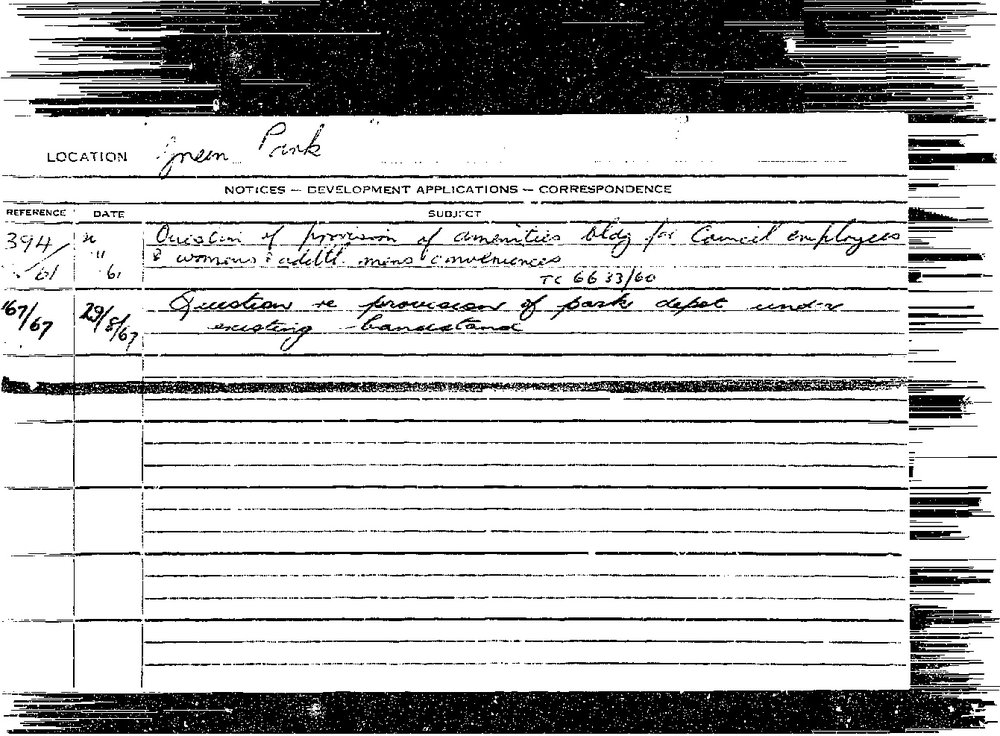 LOCATION Green Park
NOTICES — DEVELOPMENT APPLICATIONS — CORRESPONDENCE
REFERENCE DATE SUBJECT
394/61 " 61 Question of provision of amenities bldg for Council employees
& womens & additl. mens conveniences
TC 6633/60
67/67 29/8/67 Question re provision of park depot under
existing bandstand